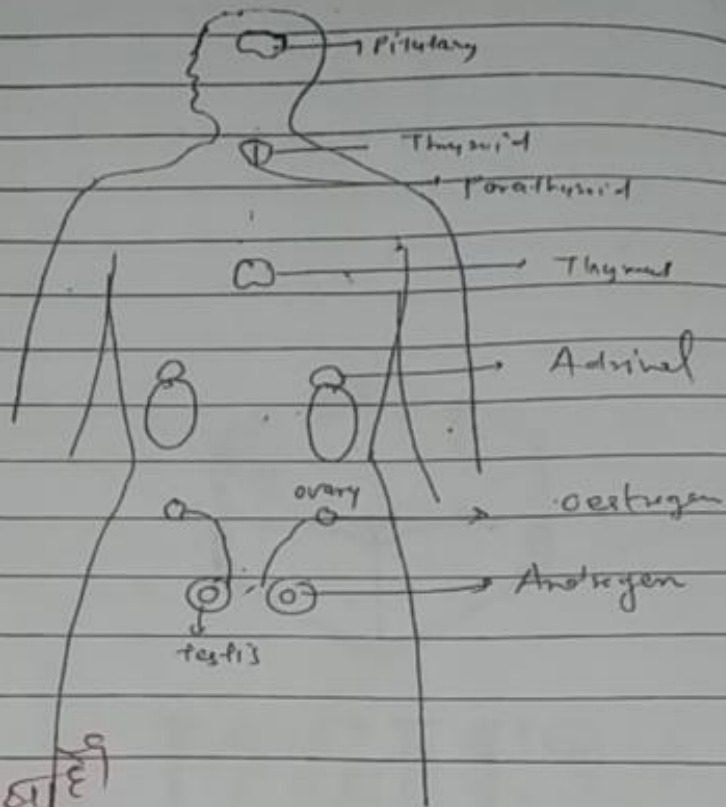 Pitutary
Thyroid
Parathyroid
Thymus
Adrinal
ovary
oestrogen
Androgen
testis